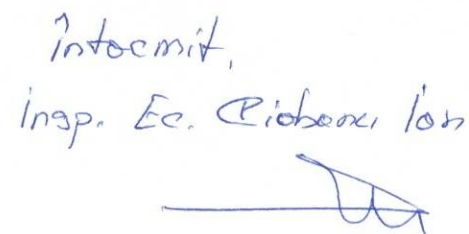 Întocmit,
Insp. Ec. Ciobanu Ion